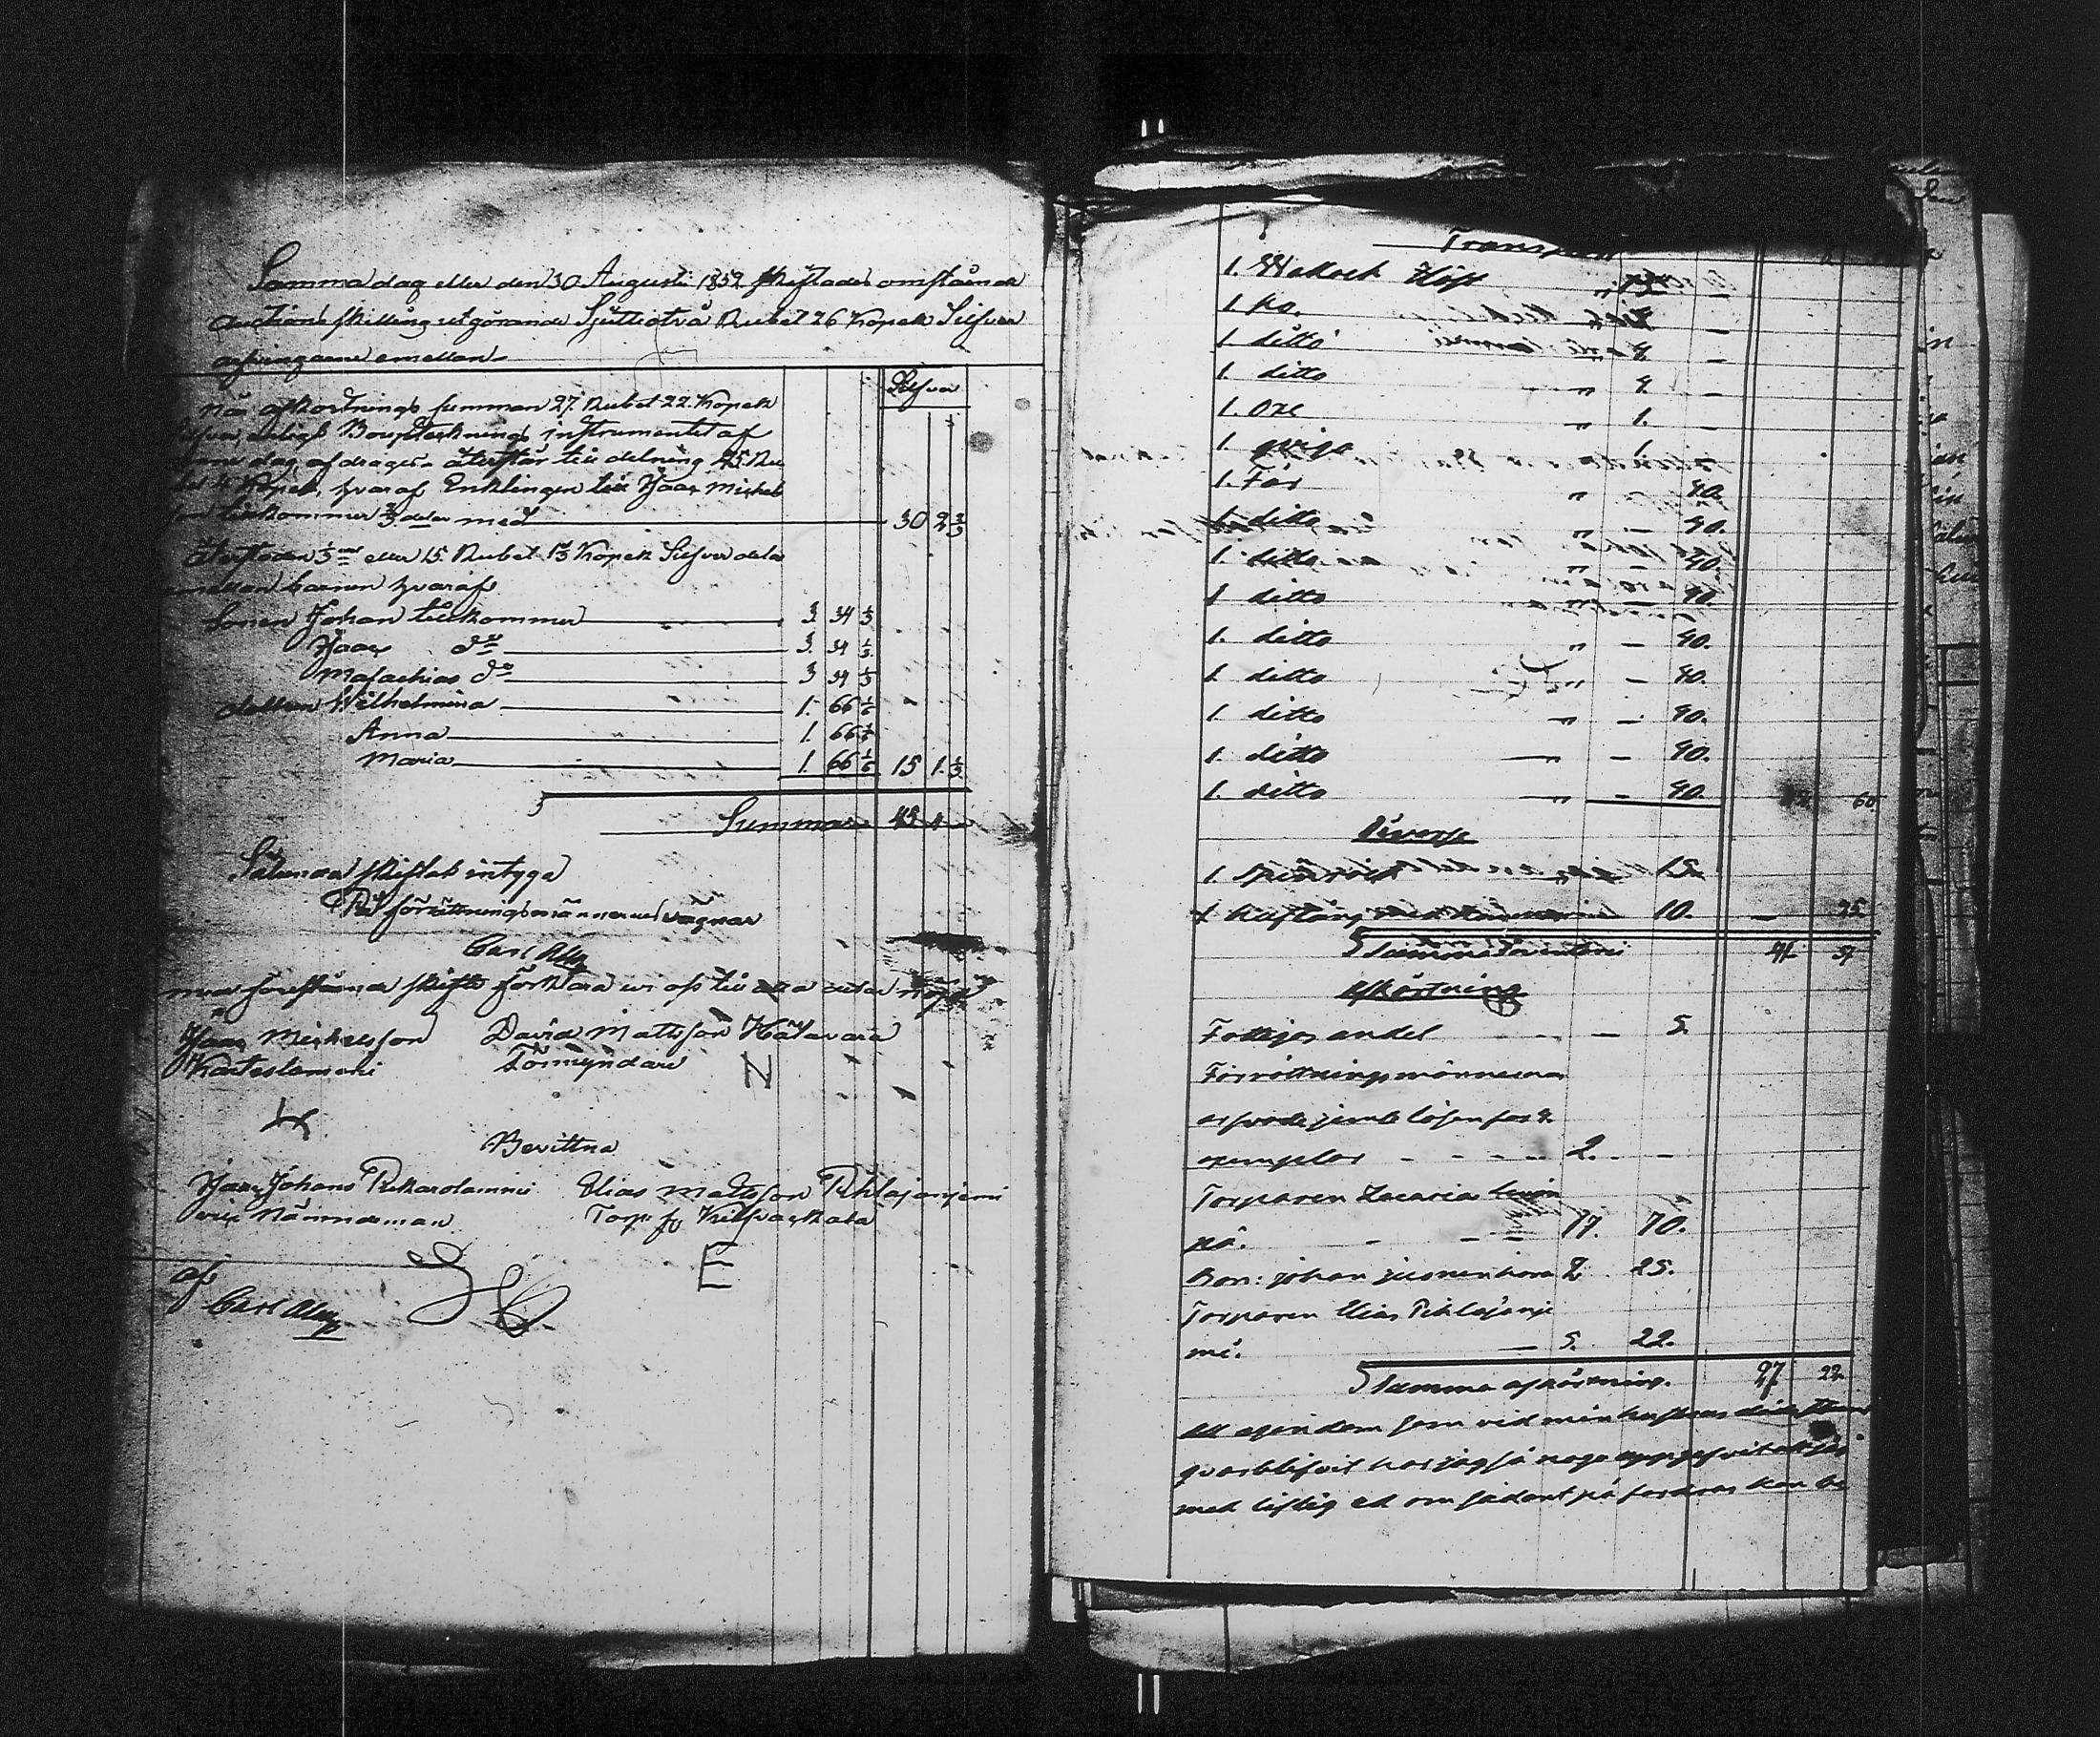 Samma dag eller den 30 Augusti 1852 skiftades omstående
auctions skilling utgörande Sjuttiotvå Rubel 26 Kopek Silfver
arfvingarne emellan.
Silfver
När afkortnings summan 27. Rubel 22. Kopek
enligt Bouptecknings instrumentet af
dag, afdrages, återstår till delning 45. Ru
Kopek, hvaraf Enklingen Michel
tillkommer 2/3 delar med 30 2 2/3
återstoden 1/3 eller 15. Rubel 1 1/3 Kopek Silfver delas
emellan barnen hvaraf
Sonen Johan tillkommer 3. 34 1/3
Isaac do 3. 34 1/3
Malachias do 3 34 1/3
dottren Wilhelmina 1. 66 1/6
Anna 1. 66 1/6
Maria 1. 66 1/6 15 1. 1/3
Summa 45 4
Sålunda skiftat intyga
På förrättningsmännernes vägnar
Carl Alm
med förestående skifte förklara vi oss till alla delar nöjde
Isaac Michelsson David Mattsson Hätavara
Förmyndare N
Bevittna
Isaac Johans Elias Mattsson Pihlajaniemi
Nämndeman Torp. fr.
E
af
Carl Alm
1. Häst " 15 –
1. ko. –
1 ditto –
1. ditto " 4. –
1. Oxe " 1. –
1. qviga 1. –
1. Får " 40.
1 ditto " – 40.
1. ditto " – 40.
1 ditto " – 40.
1. ditto " – 40.
1. ditto " – 40.
1. ditto " – 40.
1. ditto " – 40.
1. ditto " – 40. 60
Diverse
1 Spinnrock 15.
1 10. – 25
Summa Inventarii 57
Afkortning
Fattiges andel – 5.
Förrättningsmännerna
arfvode jemte lösen för 2.
exemplar - - - - 2. –
Torparen Zacarias
17. 70.
Bon: Johan 2 25.
Torparen Elias Pihlajanie
mi. – 5. 22.
Summa afkortning. 27 22
All egendom som vid min hustrus
qvarblifvit har jag så noga uppgifvit att jag
med liflig ed om sådant på fordras kan be